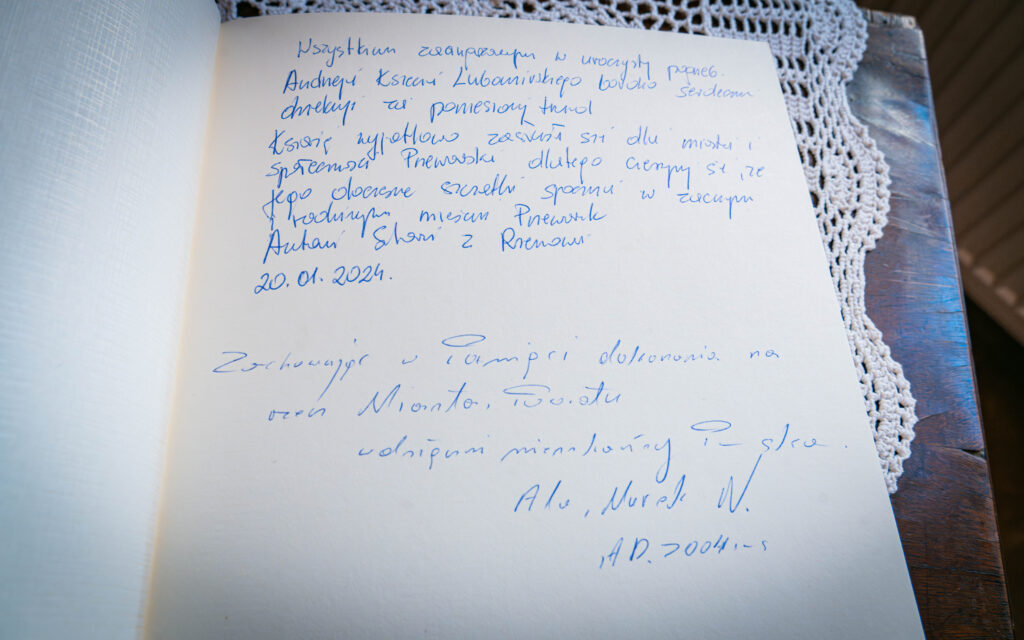 Wszystkim zaangażowanym w uroczysty pogrzeb
Andrzeja Księcia Lubomirskiego bardzo serdecznie
dziękuję za poniesiony trud
Książę wyjątkowo zasłużył się dla miasta i
społeczności Przeworska dlatego cieszymy się, że
jego doczesne szczątki spoczną w zacnym
i rodzinnym miejscu Przeworsk
Antoni z
20.01.2024.
Zachowując w Pamięci dokonania na
Miasta, Powiatu
wdzięczni mieszkańcy P-ska.
Ala, Marek W.